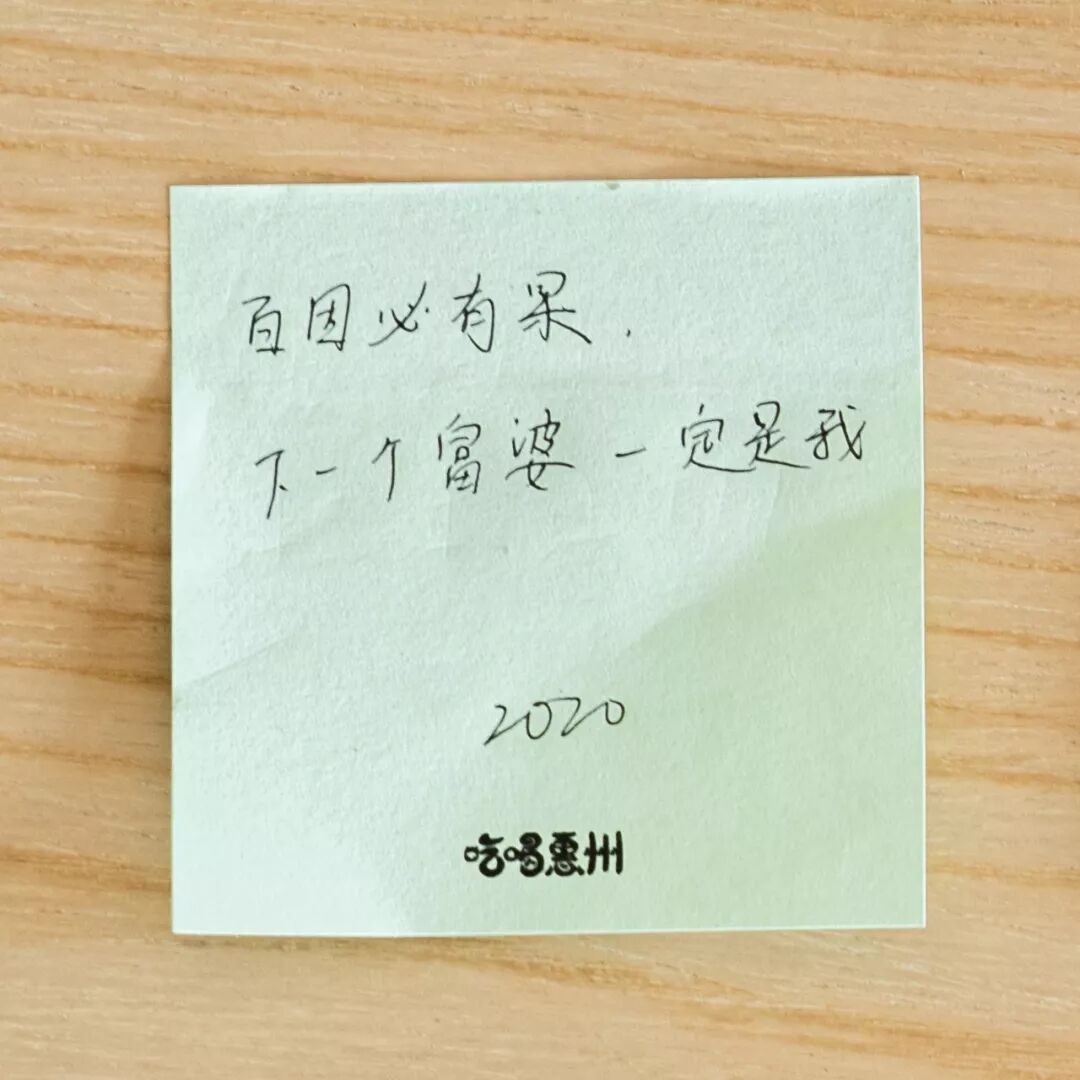 百因必有果.
下一个富婆一定是我
2020
吃喝惠州